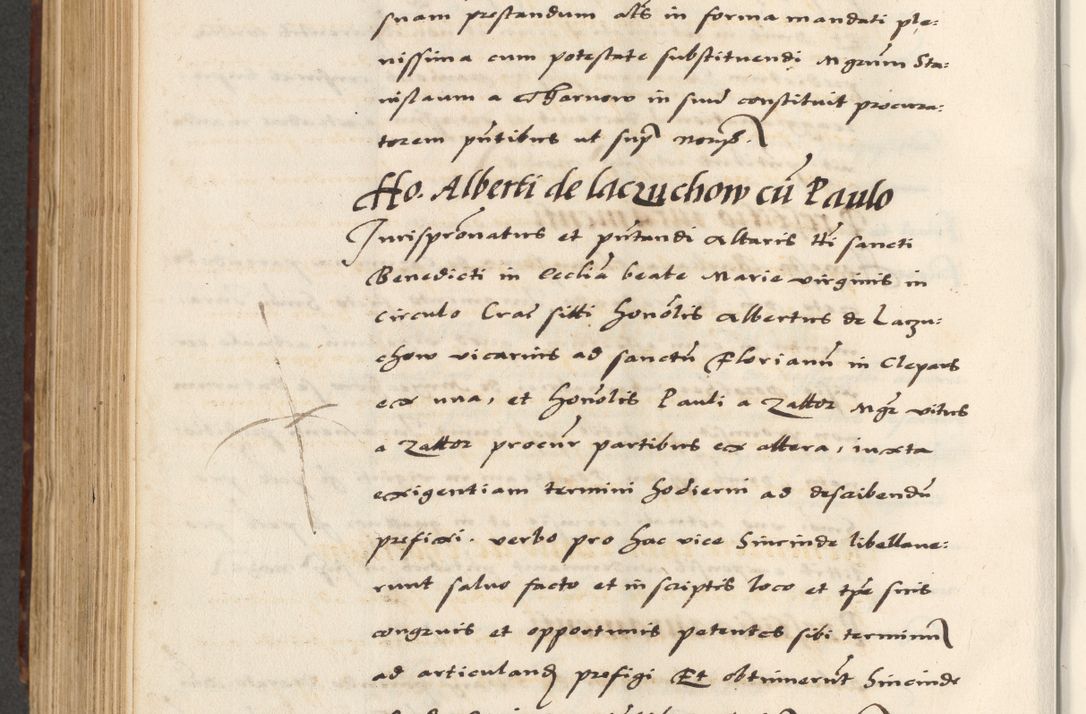 suam prestandum als in forma mandati ple:
nissima cum potestate substituendi Mgrum Sta:
nislaum a Tharnow in sui constituit procura:
torem pntibus ut sup
Ho. Alberti de laczuchow cū Paulo
Jurispronatus et pntandi Altaris tti sancti
Benedicti in Ecclia beate Marie virginis in
Circulo Crac siti honolis Albertus de Laczu:
chow vicarius ad sanctū Florianū in Clepars
ex una, et honolis Pauli a Zator Mgr vitus
a Zator procur partibus ex altera, iuxta
exigentiam termini hodierni ad describendū
prefixi. verbo pro hac vice hincinde libellave:
runt salvo facto et in scriptis loco et tpe suis
congruis et opportunis petentes sibi terminum
ad articuland prefigi Et obtinuerūt hincinde